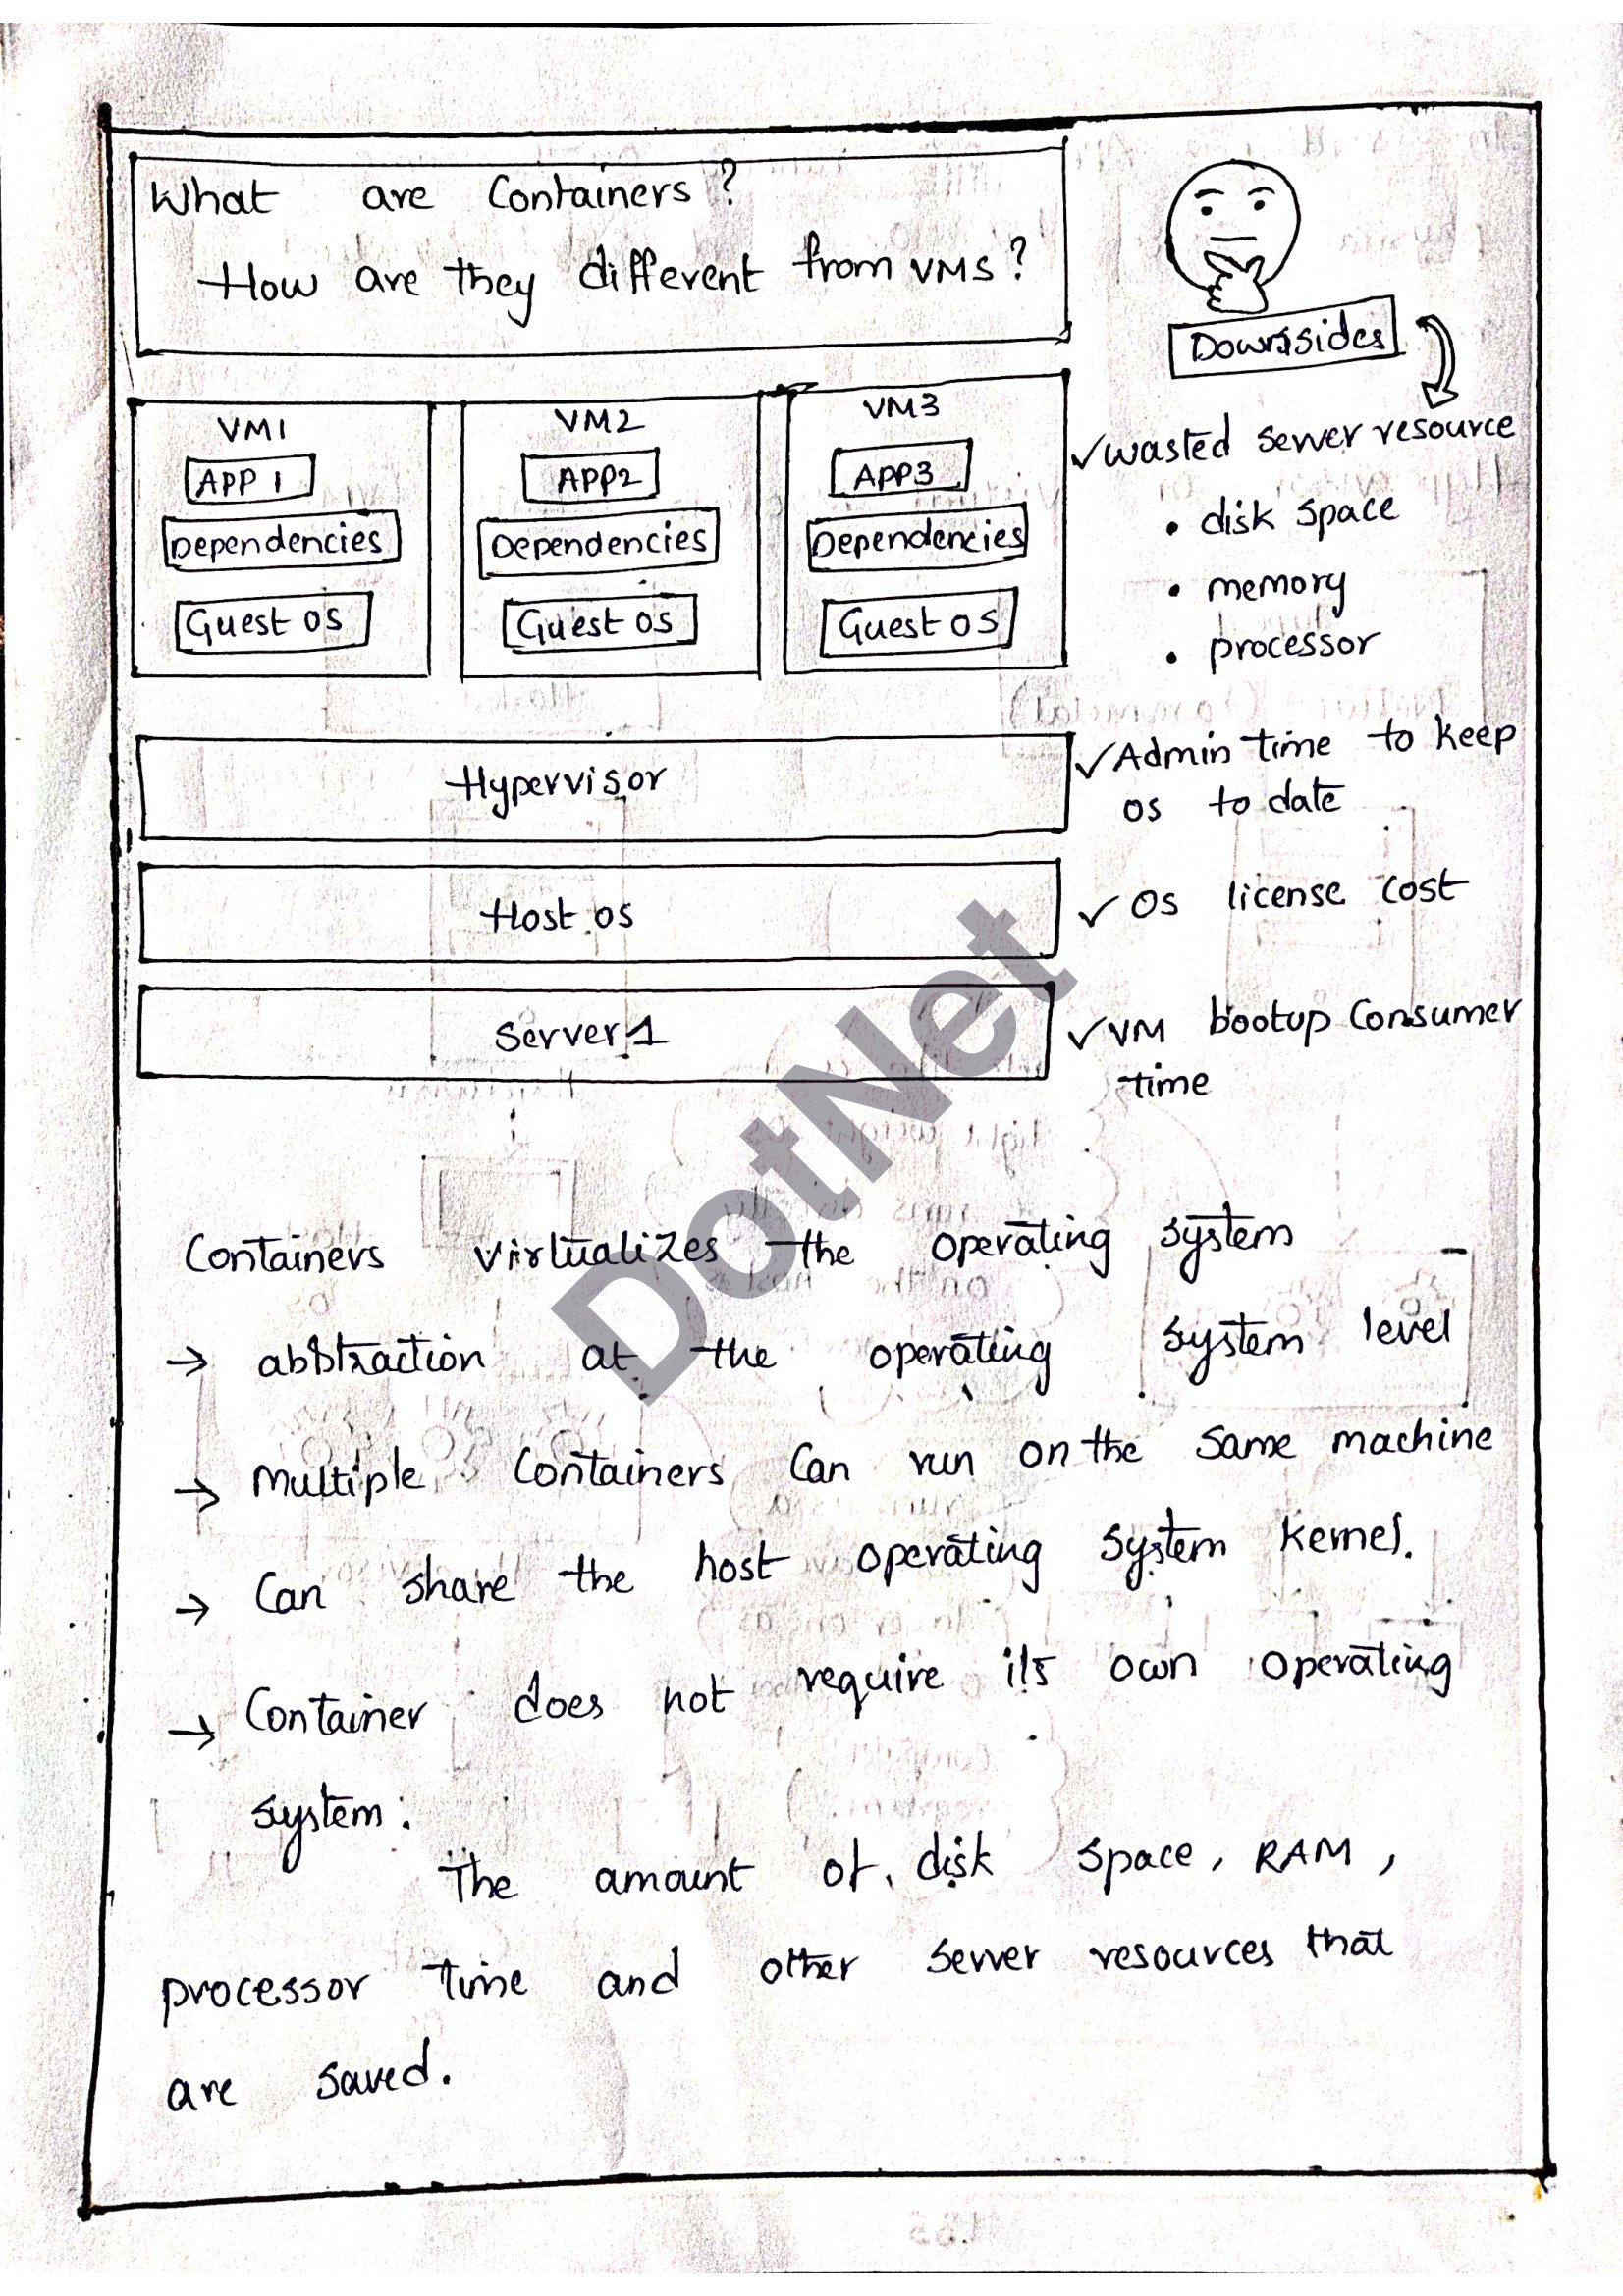 What are Containers?
How are they different from VMS?
Downsides
VM1
APP 1
Dependencies
Guest OS
VM2
APP2
Dependencies
Guest OS
VM3
APP3
Dependencies
Guest OS
✓ wasted server resource
• disk space
• memory
• processor
Hypervisor
✓ Admin time to keep
os to date
Host os
✓ OS license cost
Server 1
✓ VM bootup Consumer
time
DotNet
Containers virtualizes the operating system
→ abstraction at the operating system level
→ Multiple Containers Can run on the same machine
→ Can share the host operating system kernel.
→ Container does not require its own operating
system.
The amount of disk space, RAM,
processor time and other server resources that
are saved.